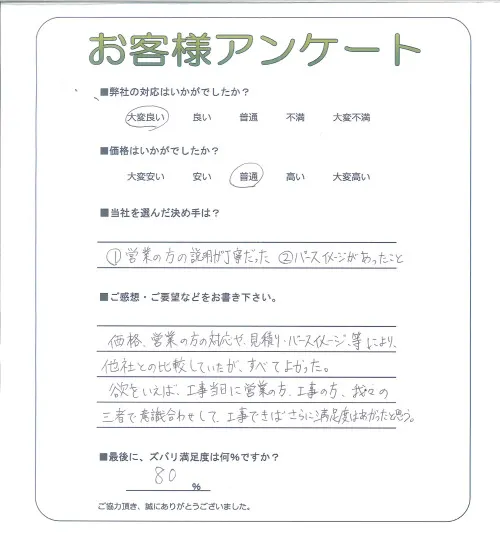 お客様アンケート
■弊社の対応はいかがでしたか？
大変良い 良い 普通 不満 大変不満
■価格はいかがでしたか？
大変安い 安い 普通 高い 大変高い
■当社を選んだ決め手は？
①営業の方の説明が丁寧だった ②パースイメージがあったこと
■ご感想・ご要望などをお書き下さい。
価格、営業の方の対応や、見積り・パースイメージ、等により、
他社との比較していたが、すべてよかった。
欲をいえば、工事当日に営業の方、工事の方、我々の
三者で意識合わせして、工事できばさらに満足度はあがったと思う。
■最後に、ズバリ満足度は何％ですか？
80 ％
ご協力頂き、誠にありがとうございました。